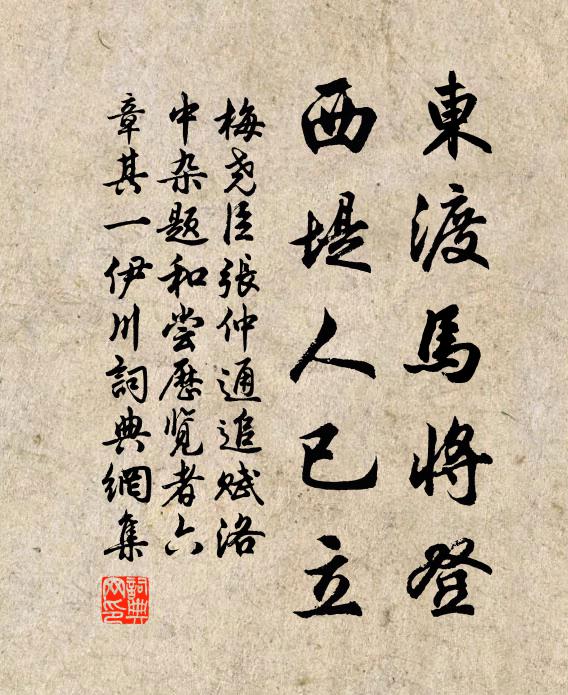 東渡馬將登
西堤人已立
梅尧臣張仲通追赋洛
中杂题和尝歷览者六
章其一伊川詞典網集
詞典网印